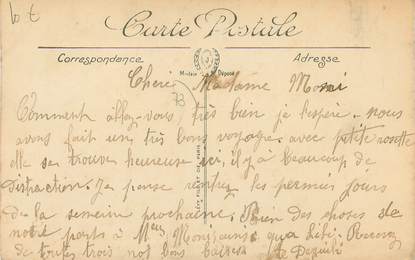 Carte Postale
Correspondance
Adresse
Modèle Déposé
Chère Madame
73
Comment allez-vous, très bien je l'espère. nous
avons fait un très bon voyage avec petite
elle se trouve heureuse ici, il y a beaucoup de
distraction. Je pense rentrer les permiers jours
de la semain prochaine. Bien des choses de
notre parts à
de toutes trois nos bons